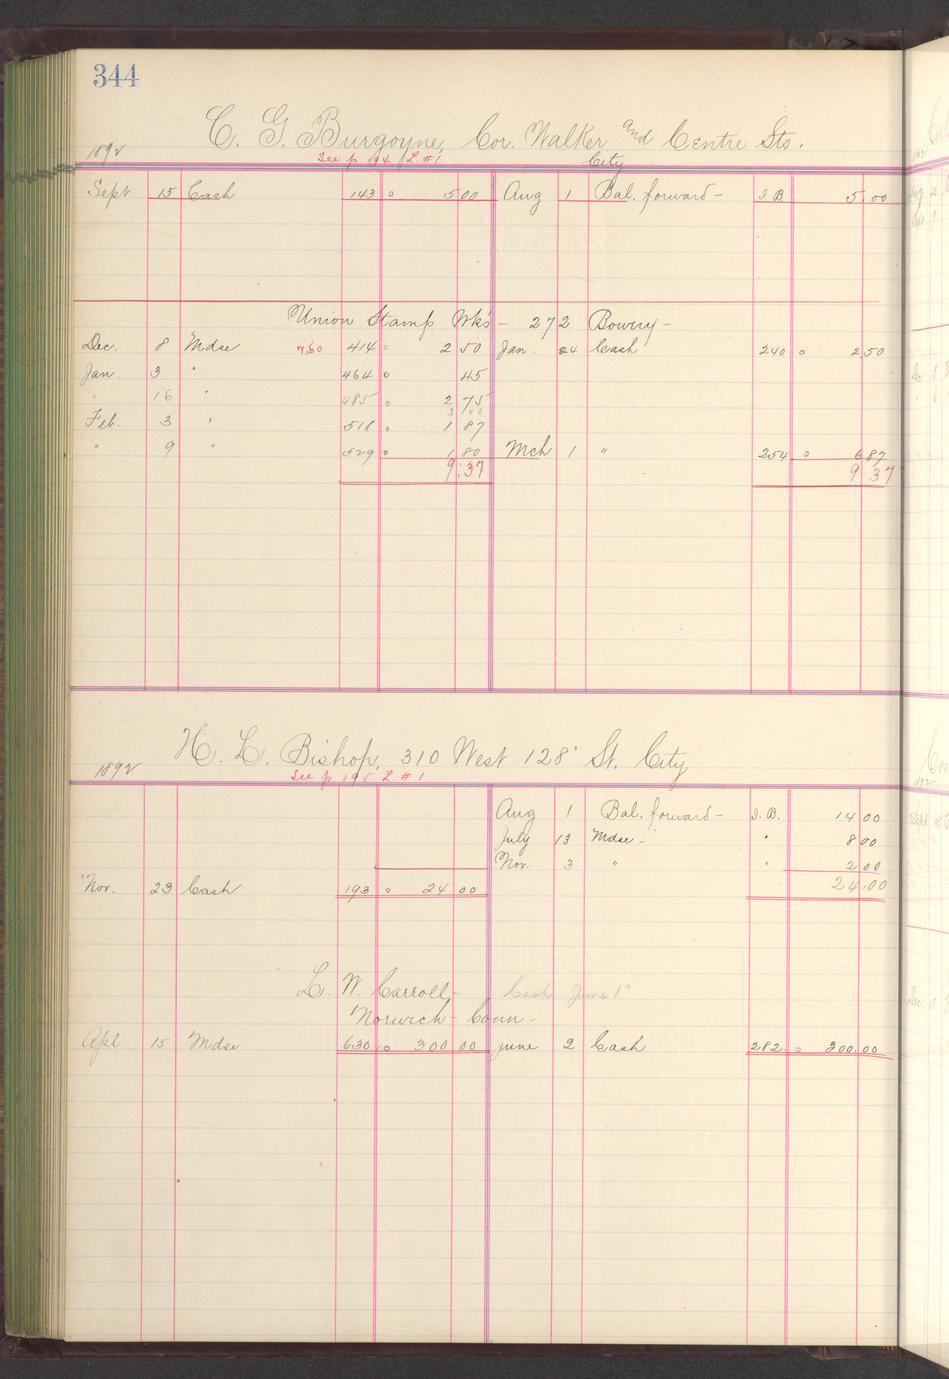 344
C. G. Burgoyne, Cor. Walker and Centre Sts.
1892 See p 194 L #1 City
Sept 15 Cash 143 o 5 00 Aug 1 Bal. forward - I. B 5 00
Union Stamp Wks - 272 Bowery -
Dec. 8 Mdse 7.50 414 o 2 50 Jan. 24 Cash 240 o 2 50
Jan. 3 " 464 o 45
" 16 " 485 o 2 75
Feb. 3 " 518 o 1 87
" 9 " 529 o 1 80 Mch 1 " 254 o 6 87
9.37 9 37
H. L. Bishop, 310 West 128' St. City
1892 See p 195 L #1
Aug 1 Bal. forward - I. B. 14 00
July 13 Mdse - " 8 00
Nov. 3 " " 2 00
Nov. 23 Cash 193 o 24 00 24.00
L. W. Carroll - Cash June 1"
Norwich - Conn -
Apl 15 Mdse 630 o 300 00 June 2 Cash 282 o 300.00